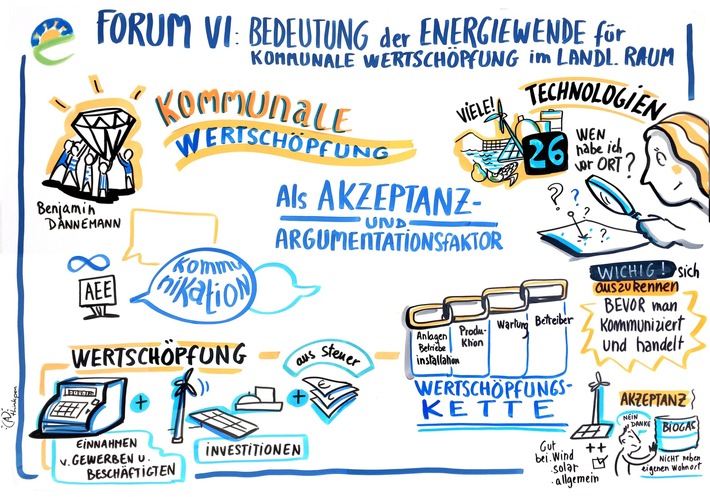 FORUM VI: BEDEUTUNG der ENERGIEWENDE für
KOMMUNALE WERTSCHÖPFUNG im LANDL. RAUM
KOMMUNALE
WERTSCHÖPFUNG
Benjamin
DANNEMANN
VIELE!
TECHNOLOGIEN
26
WEN
habe ich
vor ORT?
? ? ? ?
Als AKZEPTANZ-
UND
ARGUMENTATIONSfAKTOR
Kommu
nikation
AEE
WICHIG! sich
auszukennen
BEVOR man
Kommuniziert
und handelt
Anlagen
Betriebe
installation
Produ-
ktion
Wartung
Betreiber
WERTSCHÖPFUNGS-
KETTE
WERTSCHÖPFUNG
aus Steuer
+ + +
EINNAHMEN
v. GEWERBEN u.
BESCHÄFTIGTEN
INVESTITIONEN
AKZEPTANZ
NEIN
DANKE
BIOGAS
++
Gut
bei. Wind
solar
allgemein
NICHT neben
eigenen Wohnort